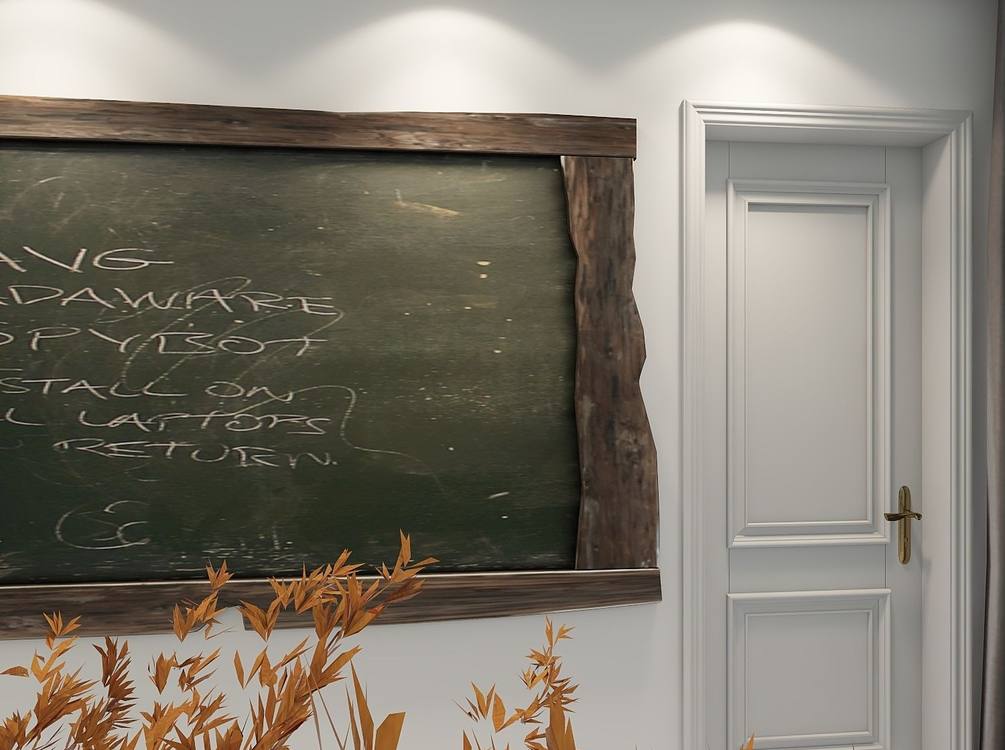 AVG
ADAWARE
PYBOT
STALL ON
L LAPTOPS
RETURN.